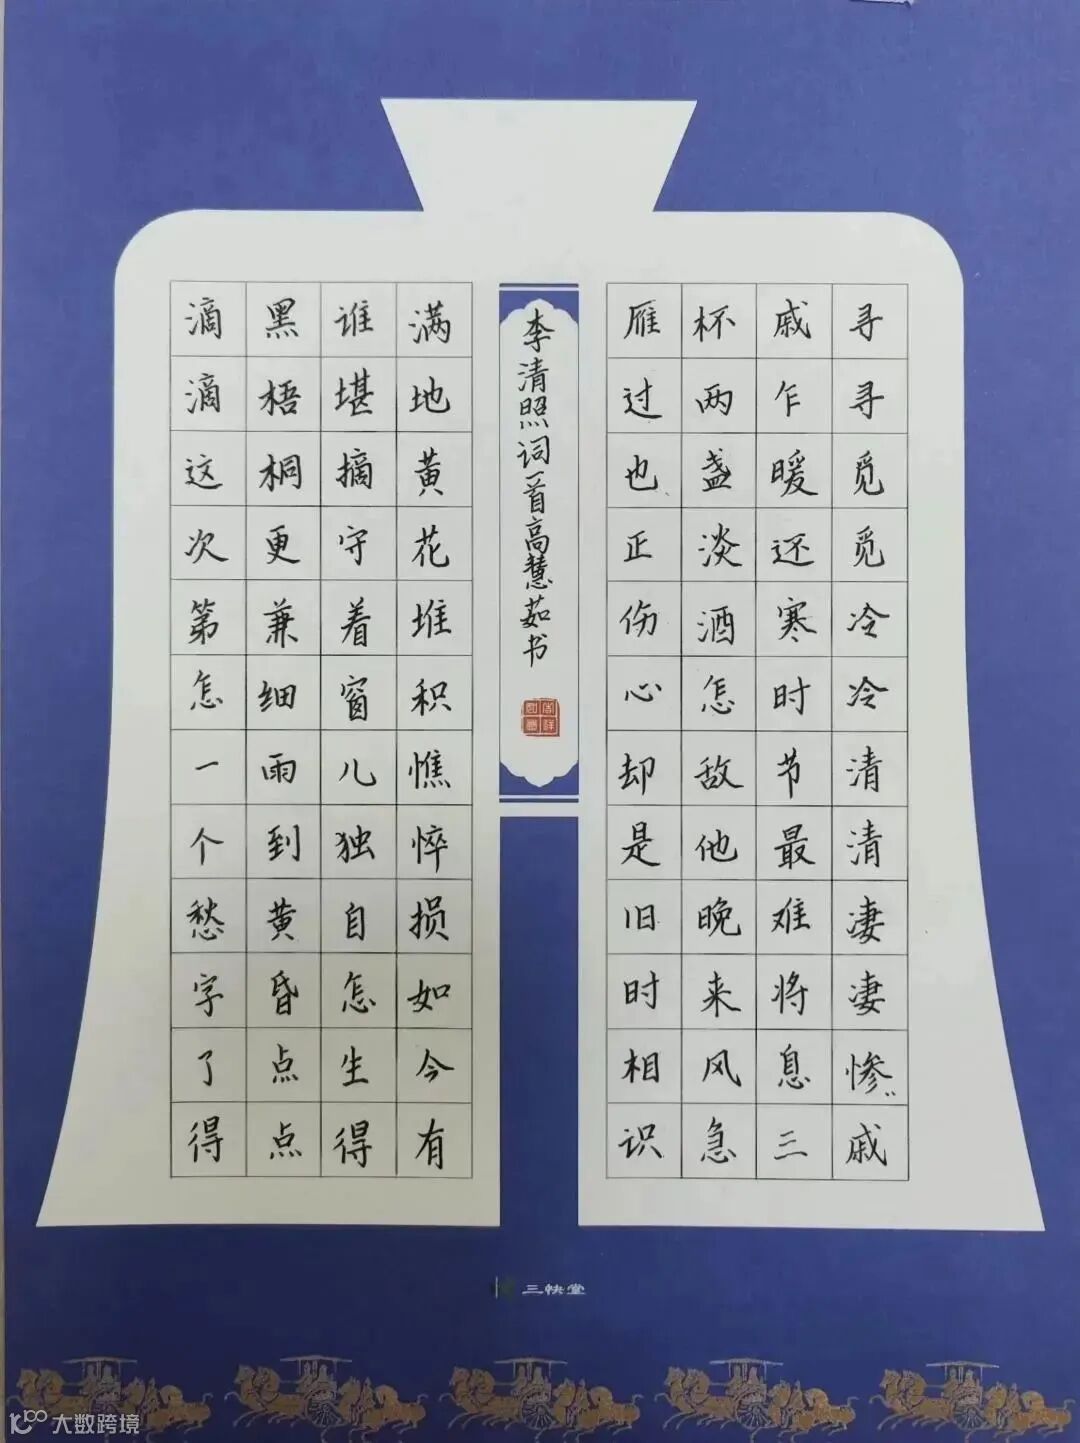 寻寻觅觅冷冷清清凄凄惨戚
戚乍暖还寒时节最难将息三
杯两盏淡酒怎敌他晚来风急
雁过也正伤心却是旧时相识
李清照词一首高慧茹书
满地黄花堆积憔悴损如今有
谁堪摘守着窗儿独自怎生得
黑梧桐更兼细雨到黄昏点点
滴滴这次第怎一个愁字了得
三快堂
大数跨境